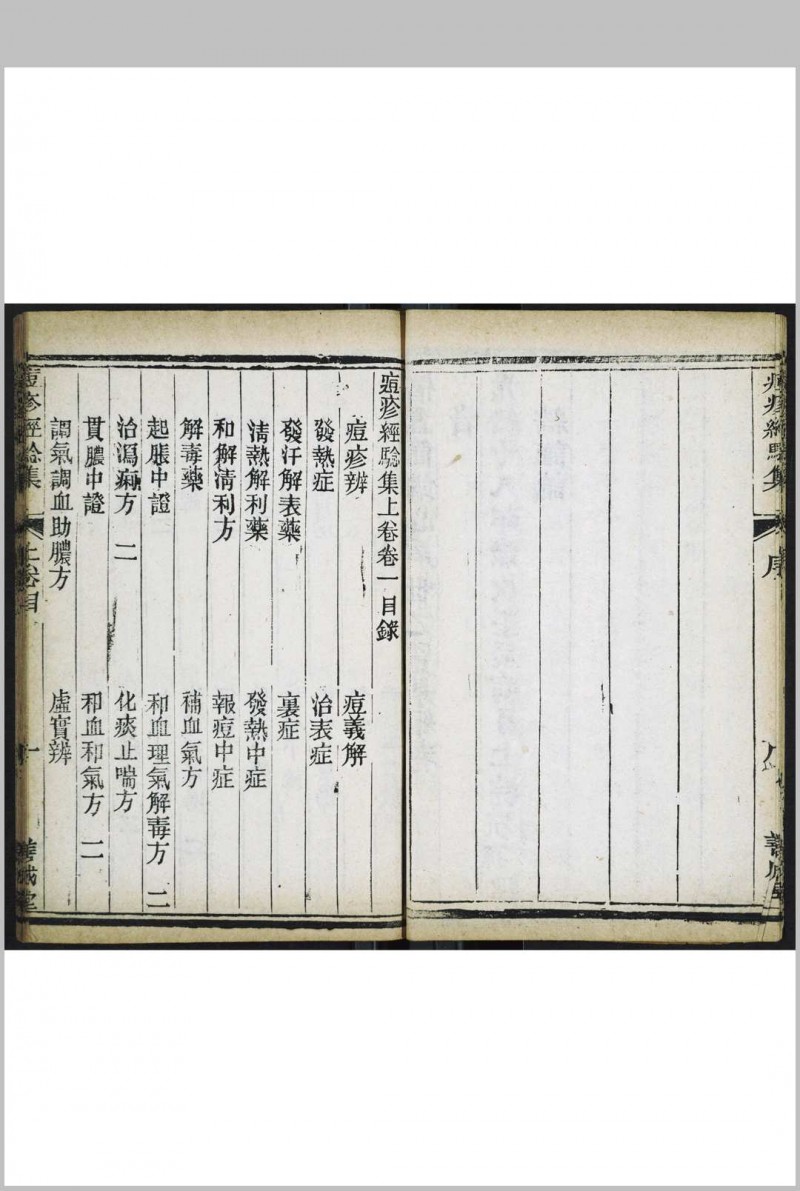 痘疹經驗集
序
善成堂
痘疹經驗集上卷卷一目錄
痘疹辨　痘義解
發熱症　治表症
發汗解表藥　裏症
清熱解利藥　發熱中症
和解清利方　報痘中症
解毒藥　補血氣方
起脹中證　和血理氣解毒方　二
治瀉痢方　二　化痰止喘方
貫膿中證　和血和氣方　二
調氣調血助膿方　虛實辨
痘疹經驗集
上卷目
一
善成堂